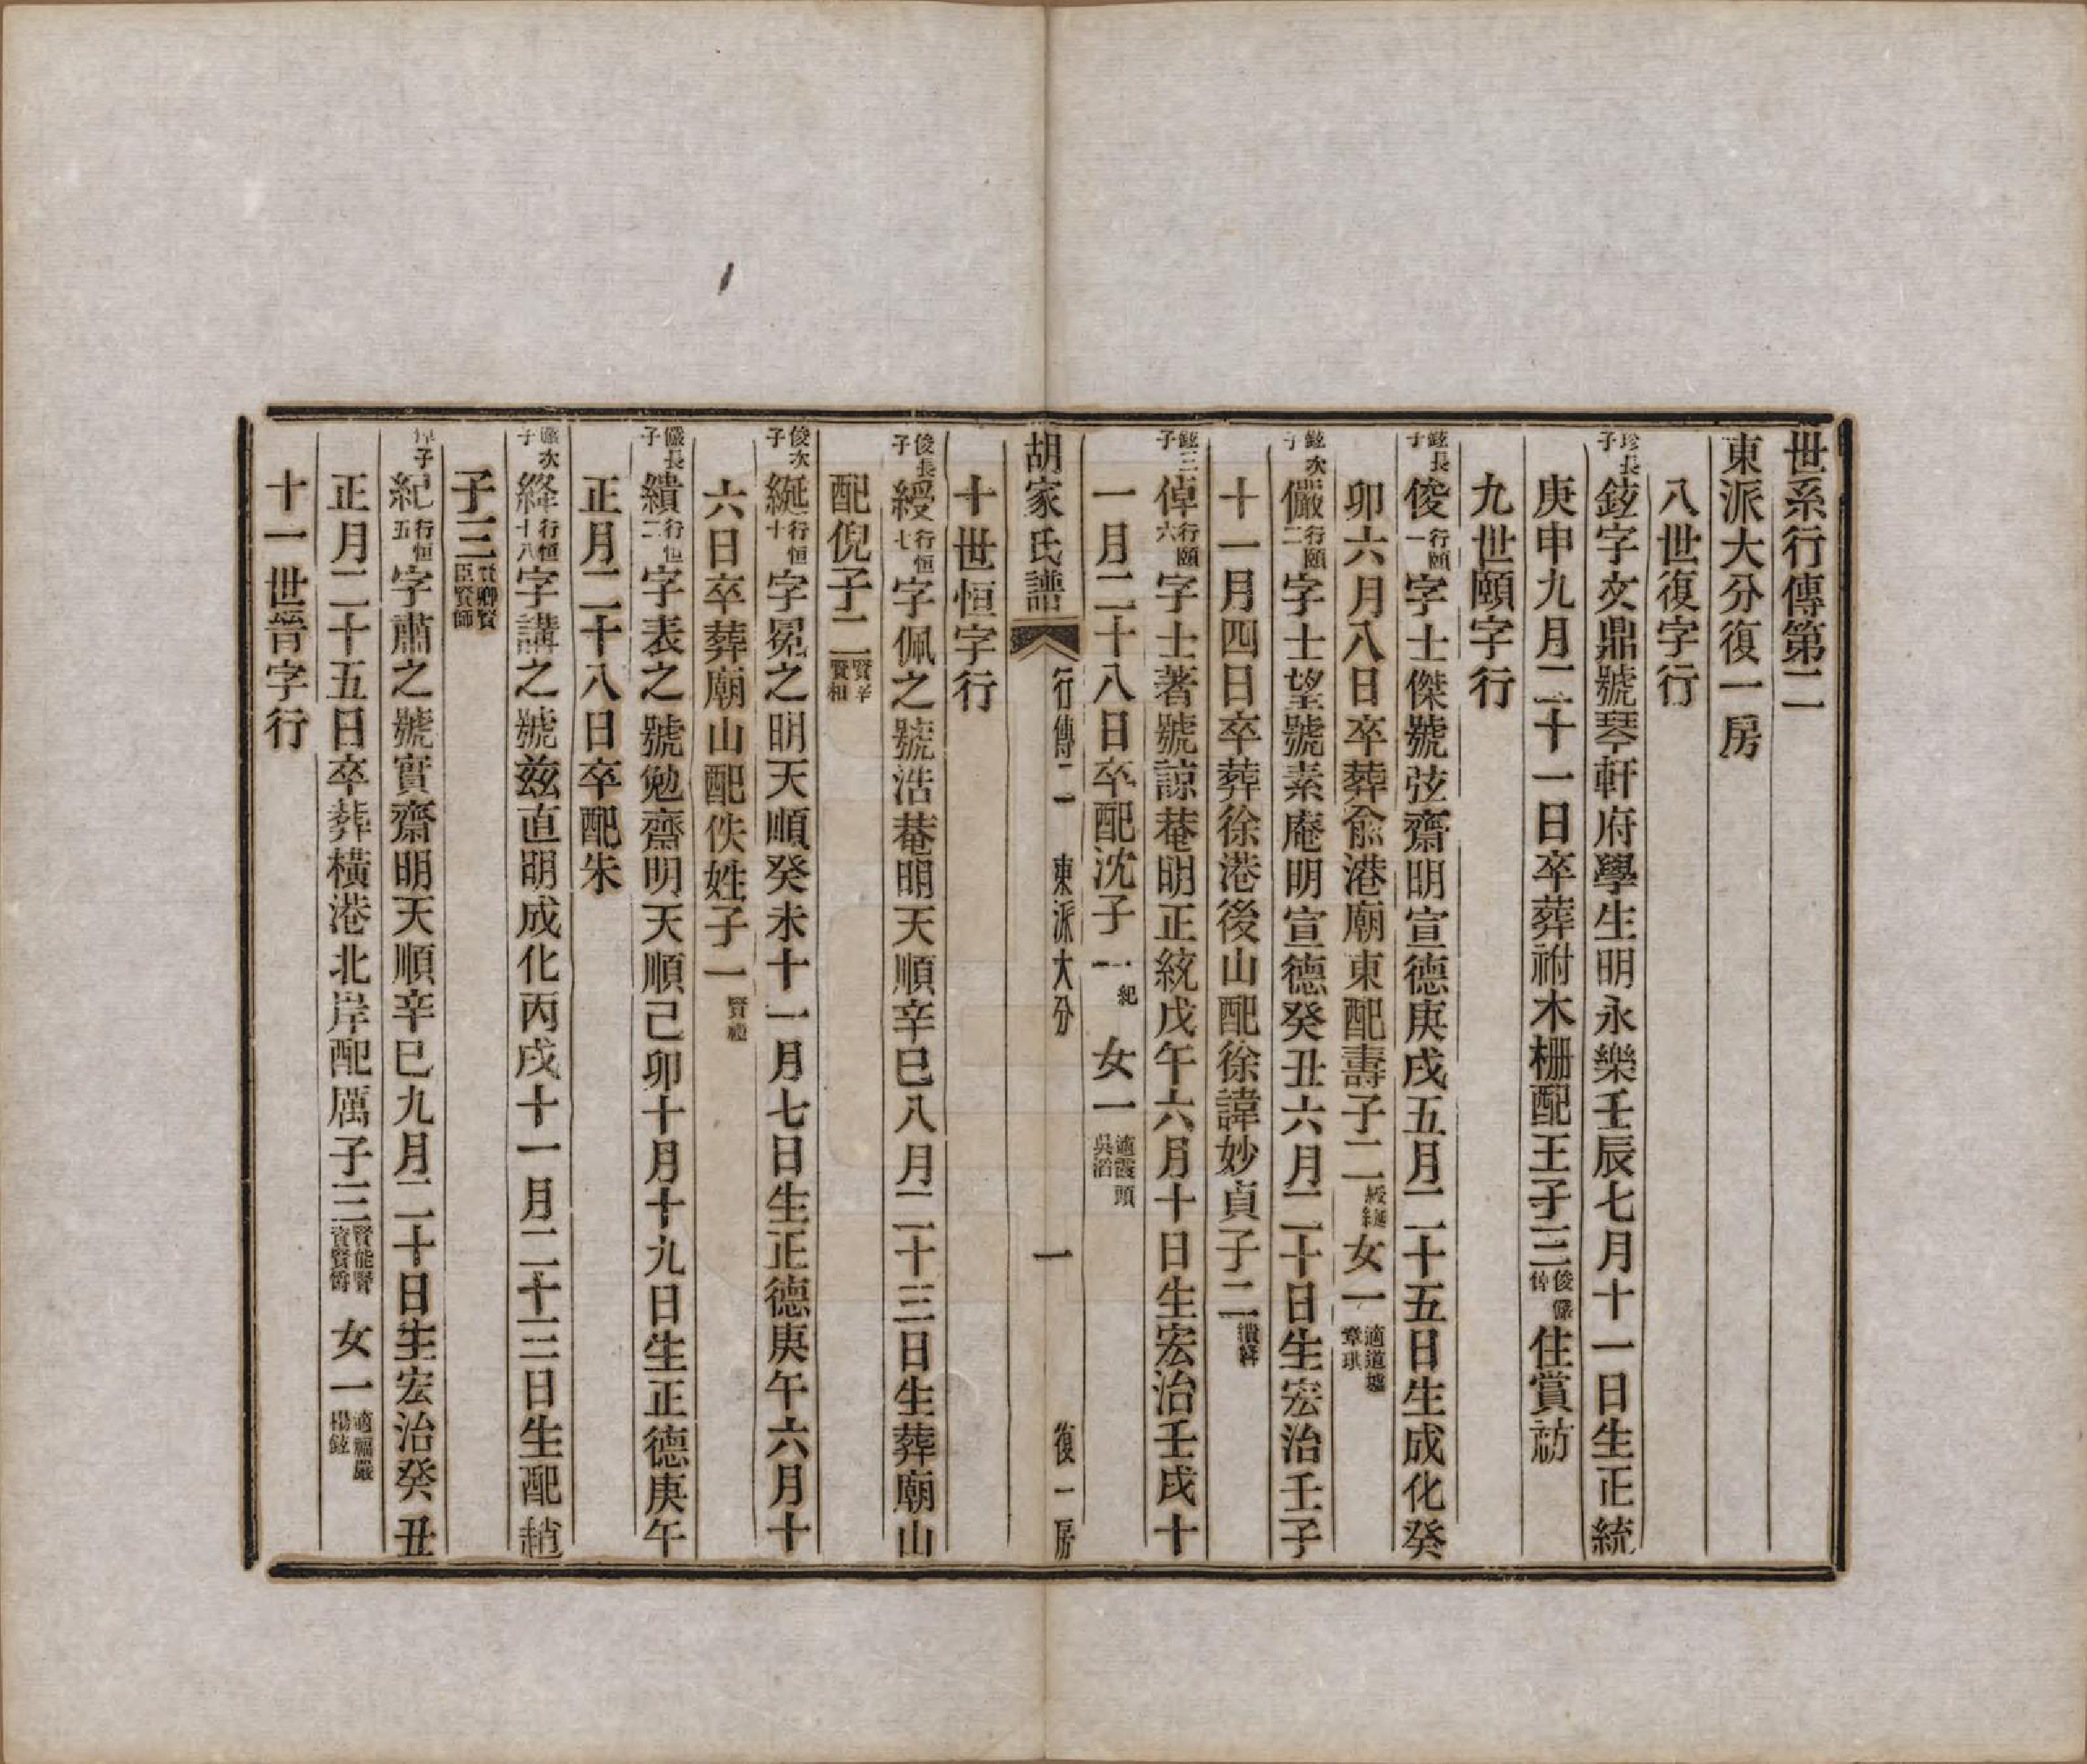 世系行傳第二
東派大分復一房
八世復字行
珍長子鉉字文鼎號琴軒府學生明永樂壬辰七月十一日生正統
庚申九月二十一日卒葬祔木栅配王子三俊儼倬住賞祊
九世頤字行
鉉長子俊行頤一字士傑號弦齋明宣德庚戌五月二十五日生成化癸
卯六月八日卒葬俞港廟東配壽子二綬綖女一適道墟章琪
鉉次子儼行頤二字士望號素庵明宣德癸丑六月二十日生宏治壬子
十一月四日卒葬徐港後山配徐諱妙貞子二繢絳
鉉三子倬行頤六字士著號諒菴明正統戊午六月十日生宏治壬戌十
一月二十八日卒配沈子一紀女一適霞頭吳滔
胡家氏譜 行傳二 東派大分 一 復一房
十世恒字行
俊長子綬行恒七字佩之號浩菴明天順辛巳八月二十三日生葬廟山
配倪子二賢宰賢相
俊次子綖行恒十字冕之明天順癸未十一月七日生正德庚午六月十
六日卒葬廟山配佚姓子一賢禮
儼長子繢行恒二字表之號勉齋明天順己卯十月十九日生正德庚午
正月二十八日卒配朱
儼次子絳行恒十八字講之號茲直明成化丙戌十一月二十三日生配趙
子三賢卿賢臣賢師
倬子紀行恒五字肅之號實齋明天順辛巳九月二十日生宏治癸丑
正月二十五日卒葬橫港北岸配厲子三賢能賢資賢爵女一適福嚴楊鉉
十一世晉字行